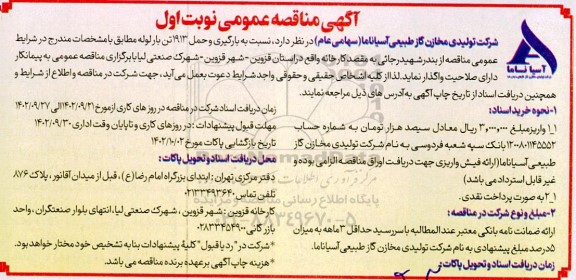 آگهی مناقصه عمومی نوبت اول
آسیا نما
شرکت تولیدی مخازن گاز طبیعی آسیاناما (سهامی عام) در نظر دارد، نسبت به بارگیری و حمل ۱۹۱۳ تن بار لوله مطابق با مشخصات مندرج در شرایط
عمومی مناقصه از بندر شهید رجائی به مقصد کارخانه واقع در استان قزوین - شهر قزوین - شهرک صنعتی لیا با برگزاری مناقصه عمومی به پیمانکار
دارای صلاحیت واگذار نماید. لذا از کلیه اشخاص حقیقی و حقوقی واجد شرایط دعوت بعمل می‌آید، جهت شرکت در مناقصه و اطلاع از شرایط و
همچنین دریافت اسناد از تاریخ چاپ آگهی به آدرس های ذیل مراجعه نمایند.
۱- نحوه خرید اسناد:
۱_۱ واریز مبلغ ۳,۰۰۰,۰۰۰ ریال معادل سیصد هزار تومان به شماره حساب
۱۲-۸۰۱۱۴۵۵۵۲ بانک سپه شعبه فردوسی به نام شرکت تولیدی مخازن گاز
طبیعی آسیاناما (ارائه فیش واریزی جهت دریافت اوراق مناقصه الزامی بوده و
غیر قابل استرداد می باشد)
۱_۲ به صورت پرداخت نقدی.
۲- مبلغ و نوع شرکت در مناقصه:
ارائه ضمانت نامه بانکی معتبر عندالمطالبه با سررسید حداقل ۳ ماهه به میزان
۵ درصد مبلغ پیشنهادی به نام شرکت تولیدی مخازن گاز طبیعی آسیاناما.
زمان دریافت اسناد و تحویل پاکات:
زمان دریافت اسناد شرکت در مناقصه در روز های کاری از مورخ ۱۴۰۲/۰۹/۲۱ الی ۱۴۰۲/۰۹/۲۷
مهلت قبول پیشنهادات: در روزهای کاری و تا پایان وقت اداری ۱۴۰۲/۰۹/۳۰
تاریخ بازگشایی پاکات مورخ ۱۴۰۲/۱۰/۰۲
محل دریافت اسناد و تحویل پاکات:
دفتر مرکزی تهران: ابتدای بزرگراه امام رضا (ع)، قبل از میدان آقانور، پلاک ۸۷۶
تلفن تماس ۰۲۱۳۳۴۹۳۶۴۰
کارخانه قزوین: شهر قزوین، شهرک صنعتی لیا، انتهای بلوار صنعتگران، واحد
بازرگانی ۰۲۸۳۳۴۵۴۹۰۰
*شرکت در "رد یا قبول" کلیه پیشنهادات بنا به تشخیص خود مختار خواهد بود.
*هزینه چاپ آگهی بر عهده برنده مناقصه می باشد.
پایگاه اطلاع رسانی مناقصه و مزایده
۰۲۱-۸۸۳۴۹۶۷۰-۵